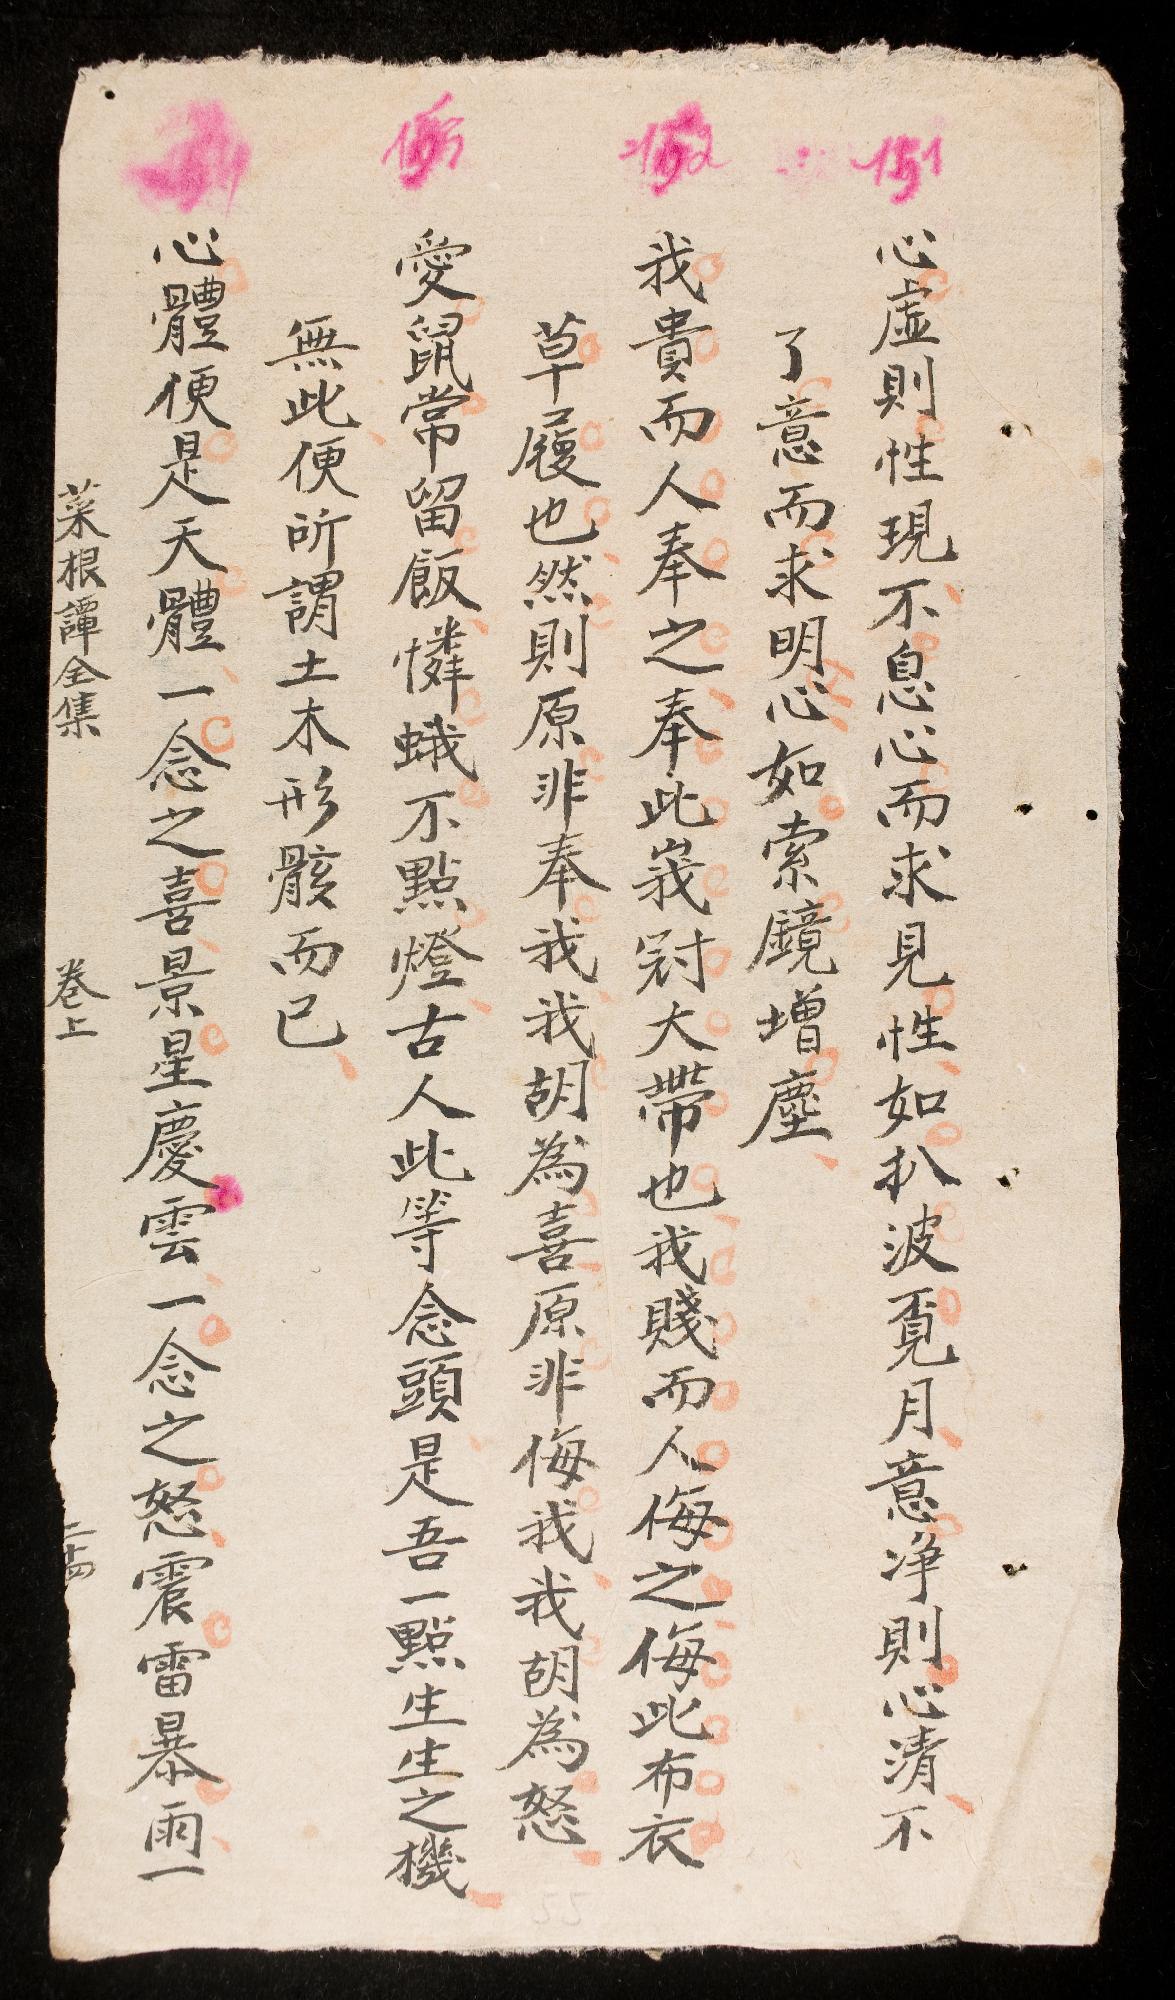 151
心虛則性現不息心而求見性如扒波覔月意净則心清不
了意而求明心如索鏡增塵
152
我貴而人奉之奉此峩冠大帶也我賤而人侮之侮此布衣
草履也然則原非奉我我胡為喜原非侮我我胡為怒
153
愛鼠常留飯憐蛾不點燈古人此等念頭是吾一點生生之機
無此便所謂土木形骸而已
心體便是天體一念之喜景星慶雲一念之怒震雷暴雨一
菜根譚全集 卷上 二十四